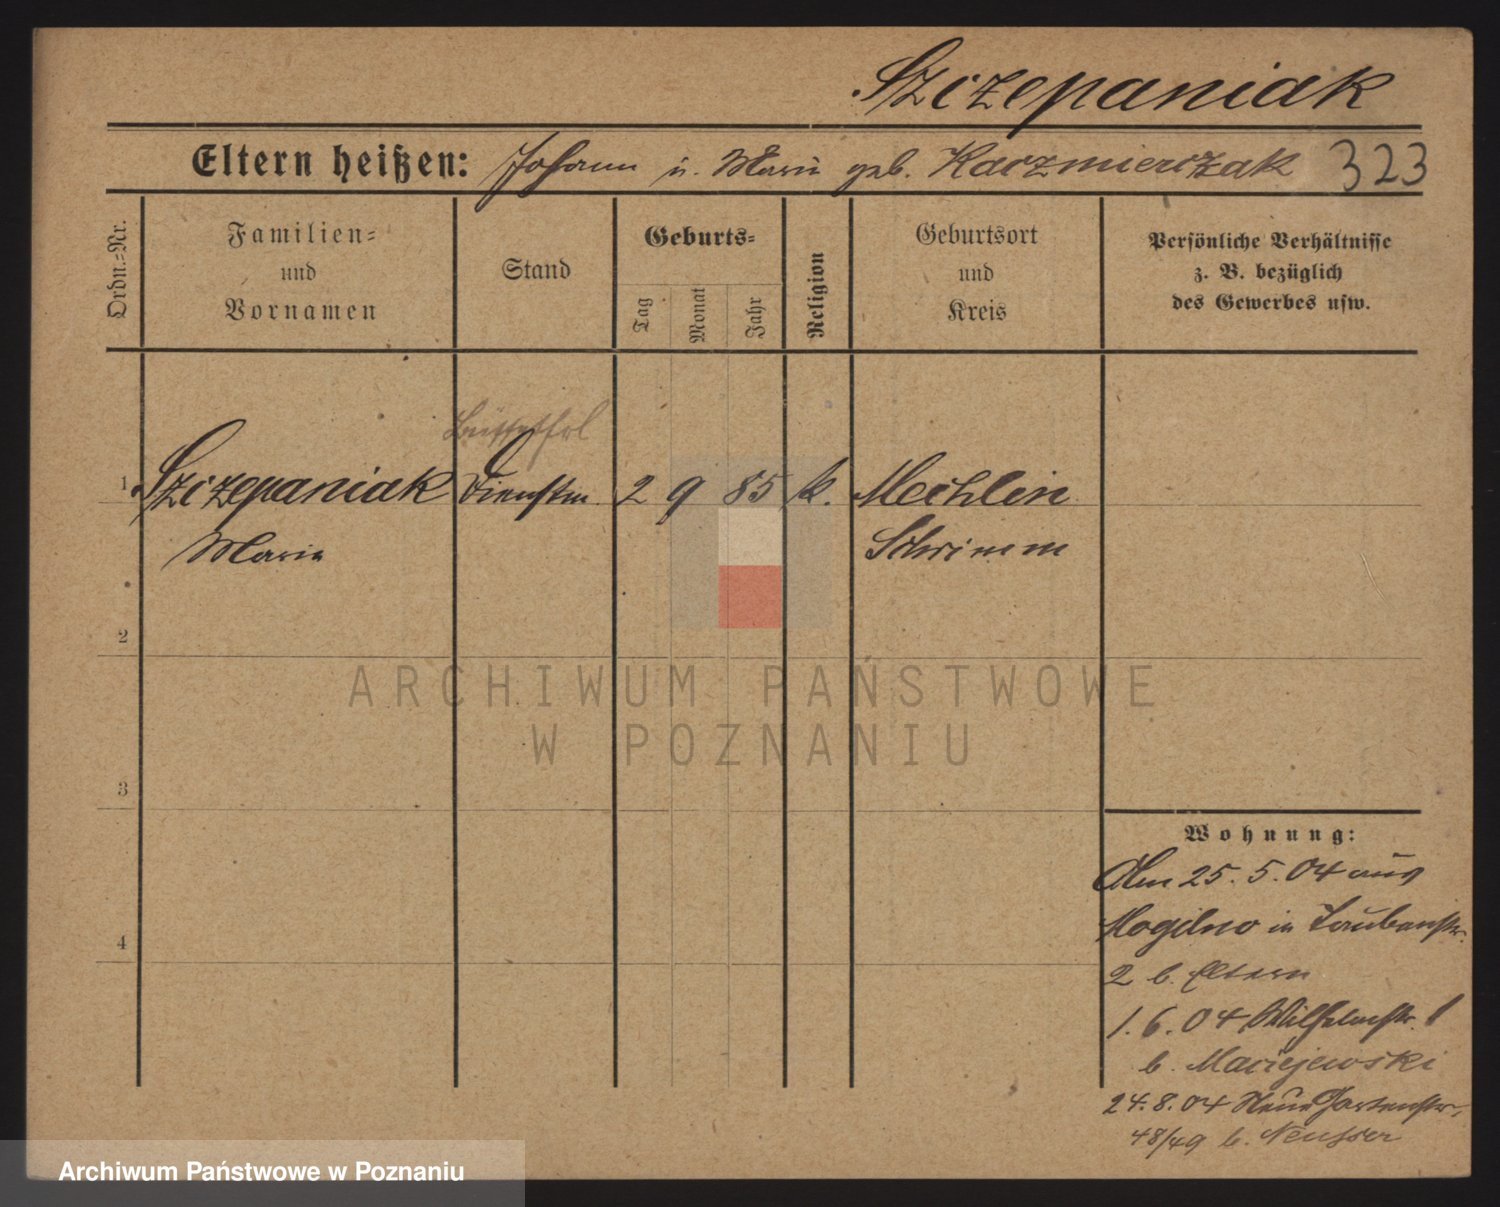 Szczepaniak
Eltern heißen: Johann u. Marie geb. Kaczmierczak 323
Ordn.-Nr.
Familien-
und
Vornamen
Stand
Geburts-
Tag
Monat
Jahr
Religion
Geburtsort
und
Kreis
Persönliche Verhältnisse
z. B. bezüglich
des Gewerbes usw.
1 Szczepaniak Dienstm. 2 9 85 k. Mechlin
Maria Schrimm
2
3
4
Wohnung:
Am 25. 5. 04 aus
Mogilno in Taubenstr.
2 b. Eltern
1. 6. 04 Wilhelmstr. 1
b. Maciejewski
24. 8. 04 Neue Gartenstr.
48/49 b. Neusser
ARCHIWUM PAŃSTWOWE
W POZNANIU
Archiwum Państwowe w Poznaniu